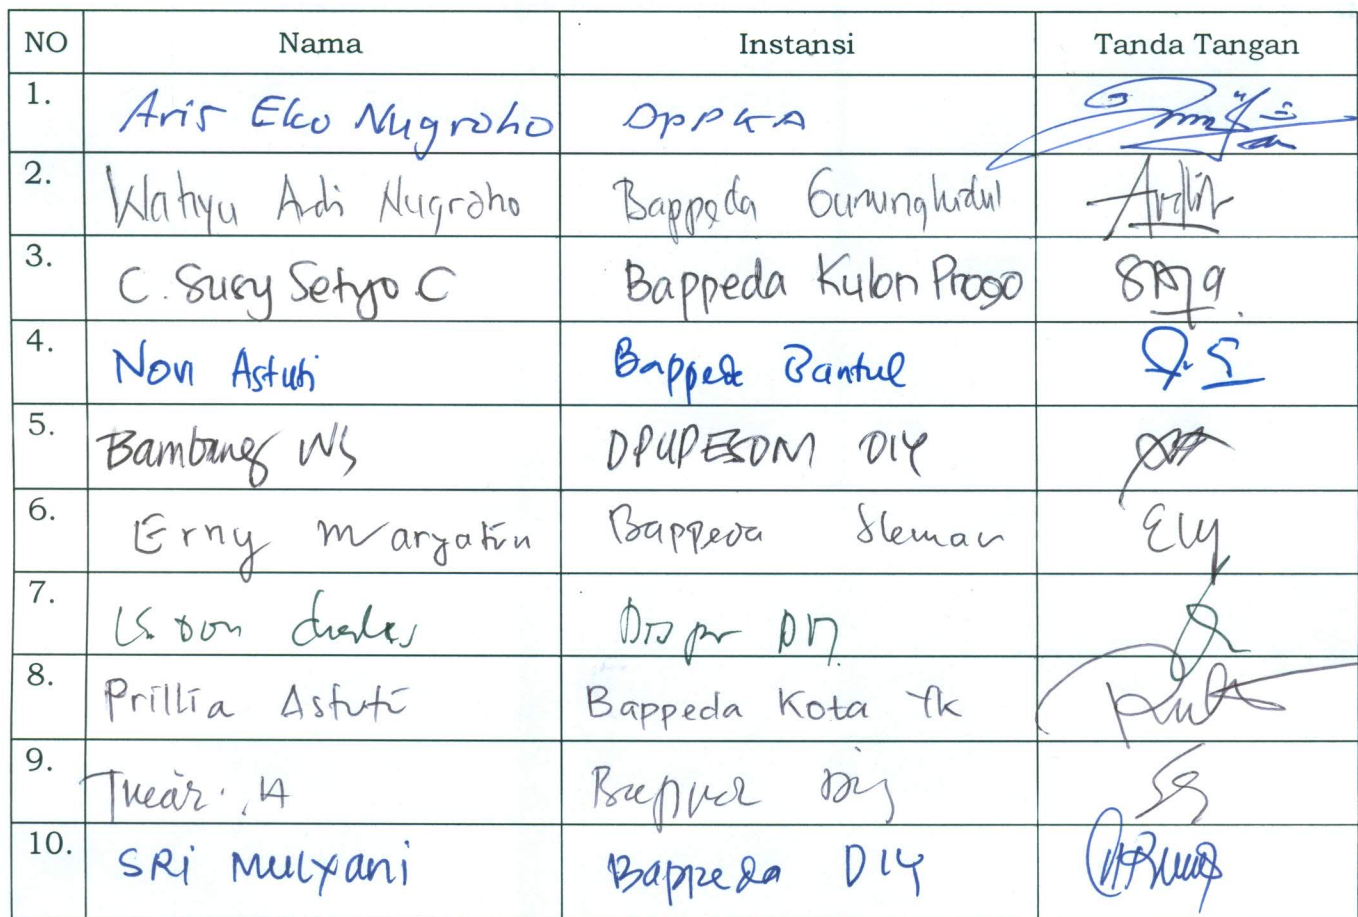 NO Nama Instansi Tanda Tangan
1. Aris Eko Nugroho DPPKA
2. Wahyu Adi Nugroho Bappeda Gunungkidul
3. C. Susy Setyo C Bappeda Kulon Progo
4. Novi Astuti Bappeda Bantul
5. Bambang WS DPUPESDM DIY
6. Erny Maryatin Bappeda Sleman
7.
8. Prillia Astuti Bappeda Kota Yk
9.
10. SRI MULYANI Bappeda DIY